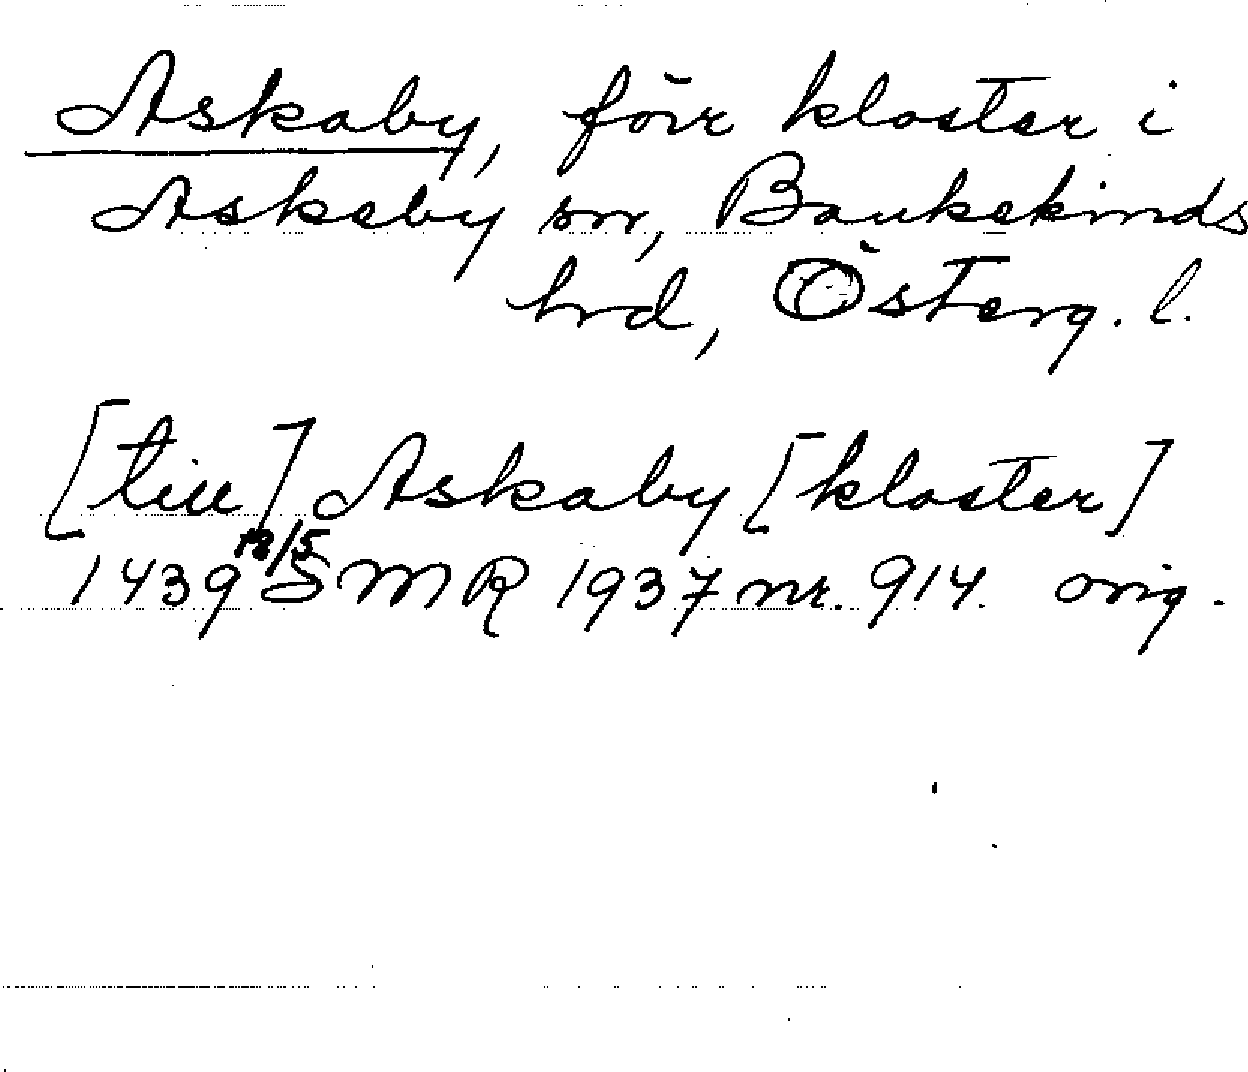 Askaby, förr kloster i
Askeby sn, Bankekinds
hrd, Österg. l.
[till] Askaby [kloster]
1439 12/5 SMR 1937 nr. 914. orig.